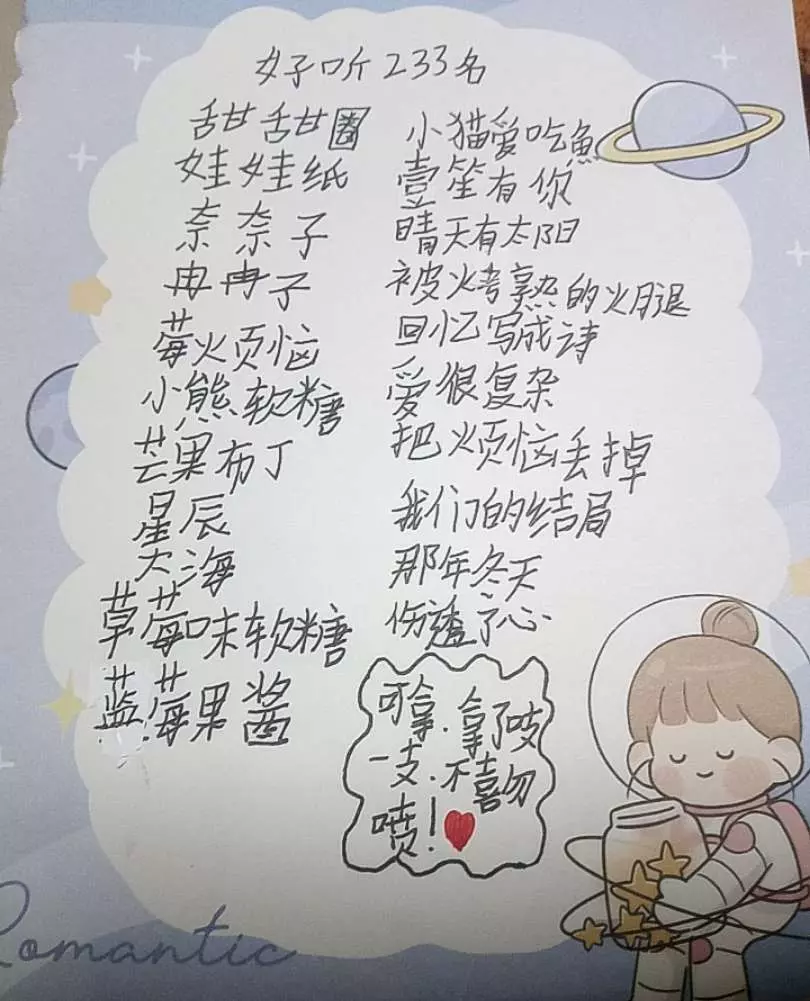 好听233名
甜甜圈
娃娃纸
奈奈子
冉冉子
莓火烦恼
小熊软糖
芒果布丁
星辰
大海
草莓味软糖
蓝莓果酱
小猫爱吃鱼
壹笙有你
晴天有太阳
被火烤熟的火腿
回忆写成诗
爱很复杂
把烦恼丢掉
我们的结局
那年冬天
伤透了心
可拿.拿了吱
一支.不喜勿
喷!
Romantic